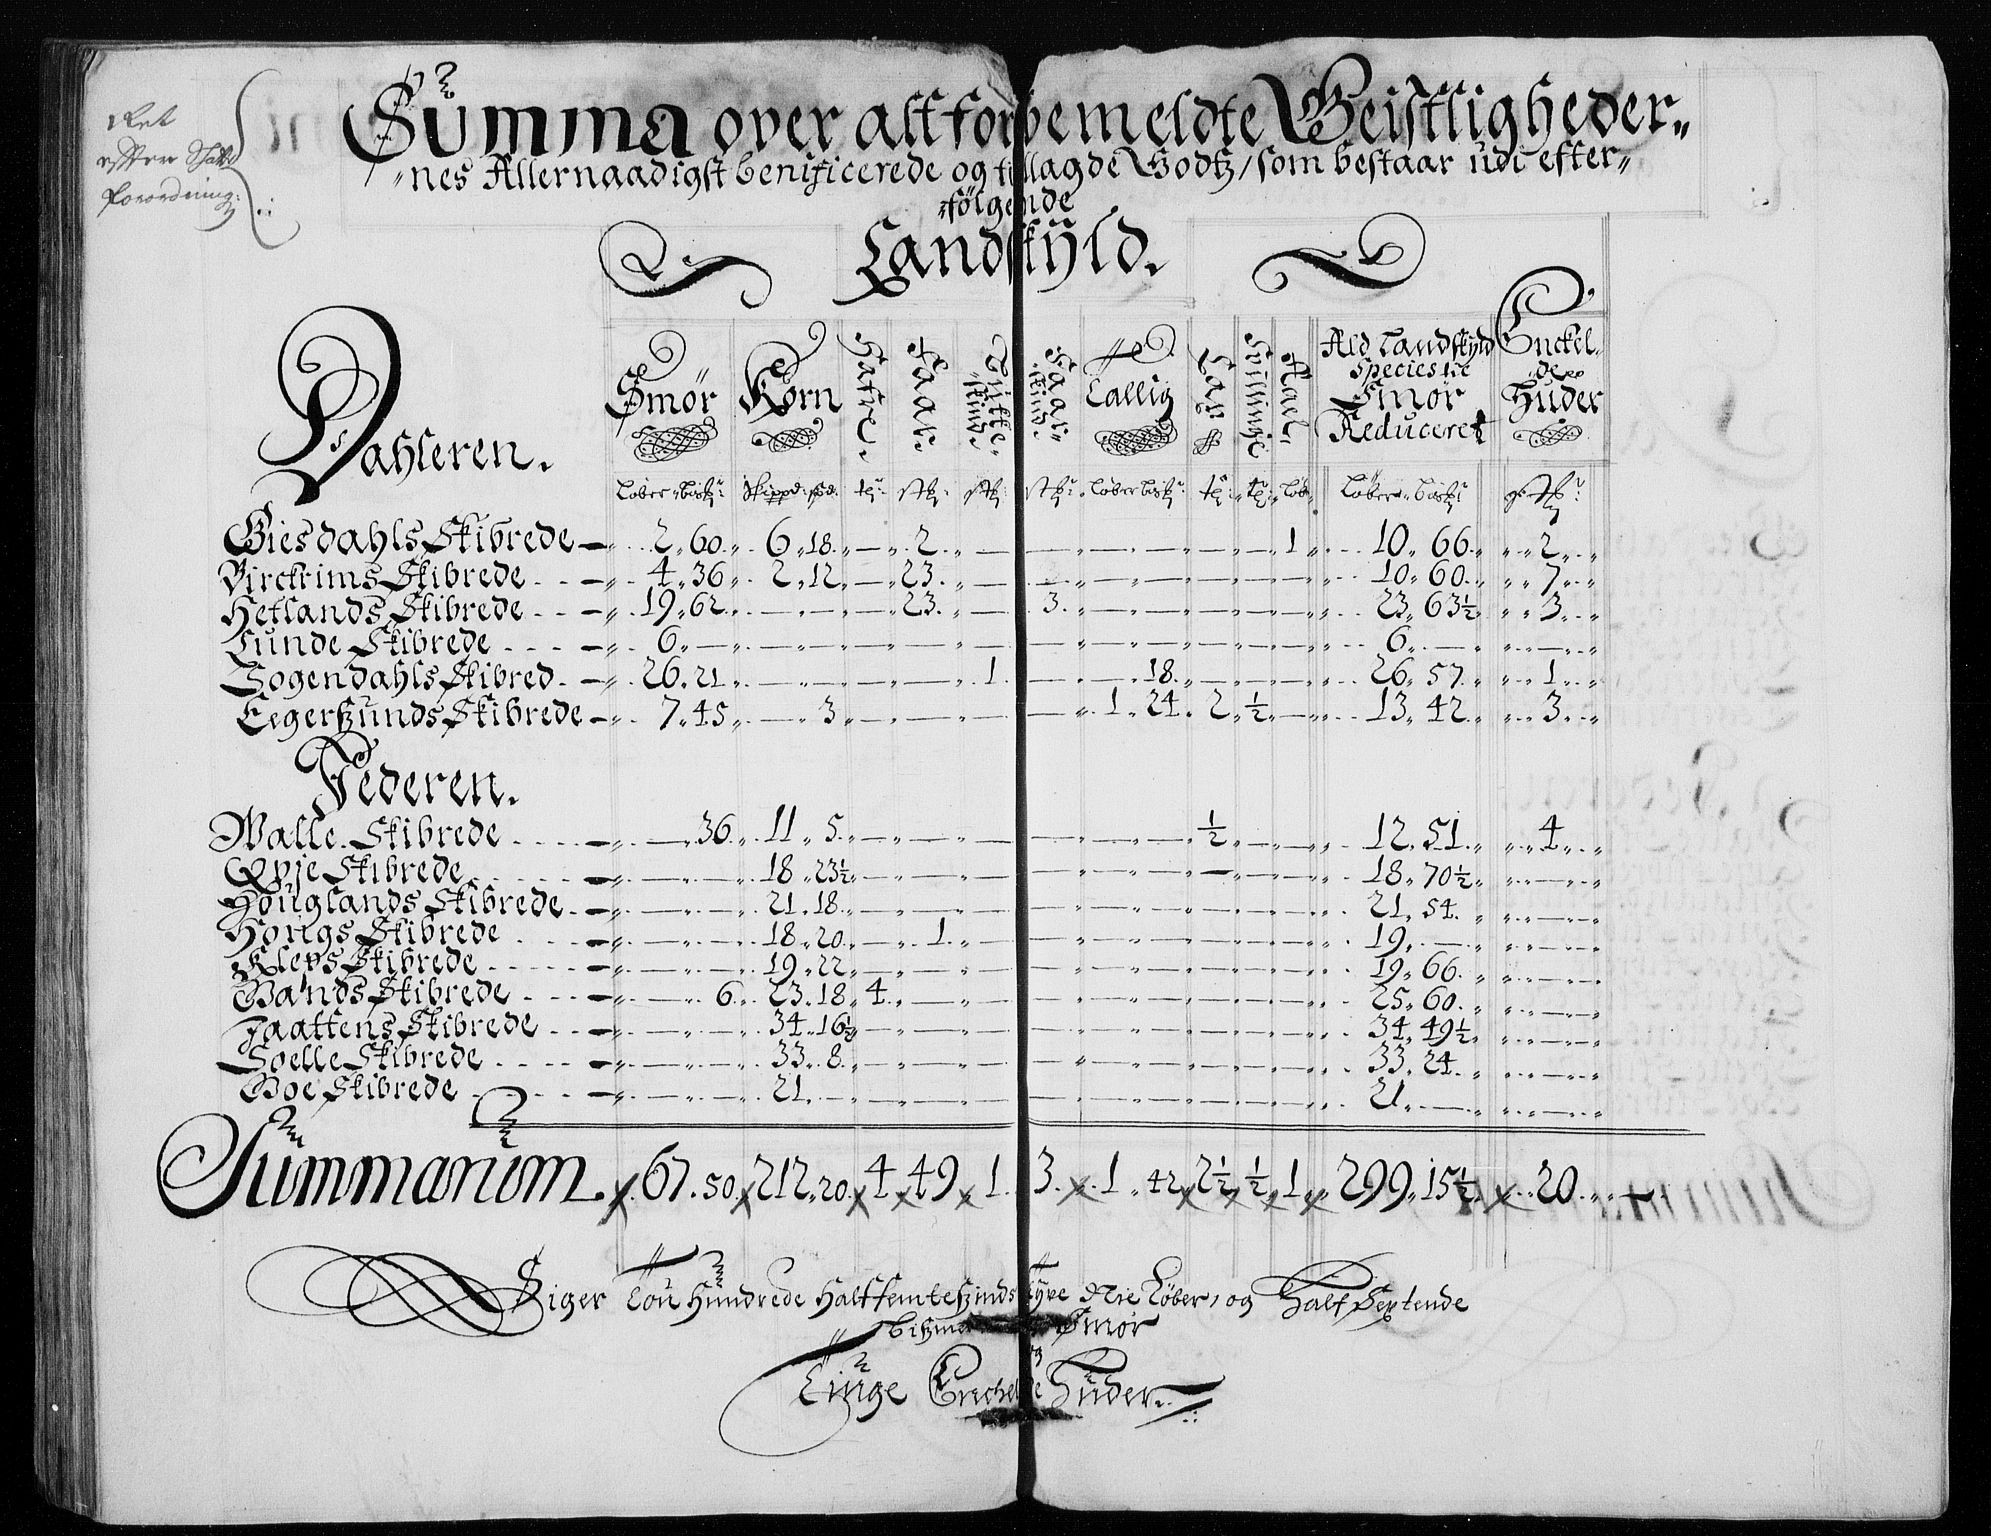 Ret
efter Skatte
Forordning:
Summa over alt forbemeldte Geistligheder-
nes Allernaadigst benificerede og tillagde Godtz, som bestaar udi efter-
følgende
Landskÿld.
Dahleren.
Smør Korn Saltre. Faar. Bukke-skind. Faar-skind. Tallig Lax Spillinge Mael. Ald Landskyld Species til Smør Reduceret Enckel- de Huder
Løber bisk: Skippd: sod: tr: stk: stk: stk: Løber bisk: tr: tr: Løb: Løber bisk: stk:
Giesdahls Skibrede 2 60 6 18 2 1 10 66 2
Birckrims Skibrede 4 36 2 12 23 10 60 7
Hetlands Skibrede 19 62 23 3 23 63½ 3
Lunde Skibrede 6 6
Sogendahls Skibred 26 21 1 18 26 57 1
Eegersunds Skibrede 7 45 3 1 24 2 ½ 13 42 3
Jederen.
Walle Skibrede 36 11 5 ½ 12 51 4
Qvie Skibrede 18 23½ 18 70½
Houglands Skibrede 21 18 21 54
Hougs Skibrede 18 20 1 19
Kleps Skibrede 19 22 19 66
Gands Skibrede 6 23 18 4 25 60
Jaattens Skibrede 34 16½ 34 49½
Soelle Skibrede 33 8 33 24
Goe Skibrede 21 21
Summarum 67 50 212 20 4 49 1 3 1 42 2½ ½ 1 299 15½ 20
Siger Tou Hundrede Halffemtesindstyve Nie Løber, og Half Sextende
Smør
og
Tiuge Enckelde Huder